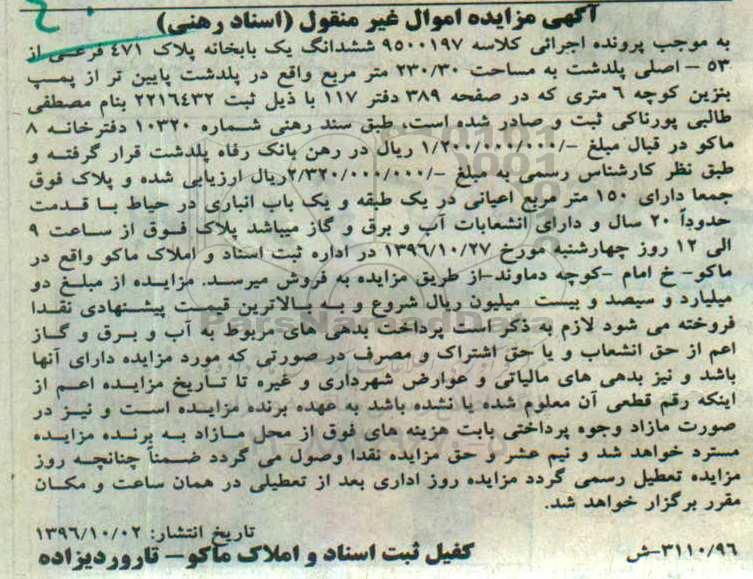 آگهی مزایده اموال غیر منقول (اسناد رهنی)
به موجب پرونده اجرائی کلاسه ۹۵۰۰۱۹۷ ششدانگ یک بابخانه پلاک ۴۷۱ فرعی از
۵۳ – اصلی پلدشت به مساحت ۲۳۰/۳۰ متر مربع واقع در پلدشت پایین تر از پمپ
بنزین کوچه ۶ متری که در صفحه ۳۸۹ دفتر ۱۱۷ با ذیل ثبت ۲۲۱۶۴۳۲ بنام مصطفی
طالبی پورناکی ثبت و صادر شده است، طبق سند رهنی شماره ۱۰۳۲۰ دفترخانه ۸
ماکو در قبال مبلغ –/۱/۲۰۰/۰۰۰/۰۰۰ ریال در رهن بانک رفاه پلدشت قرار گرفته و
طبق نظر کارشناس رسمی به مبلغ –/۲/۳۲۰/۰۰۰/۰۰۰ریال ارزیابی شده و پلاک فوق
جمعا دارای ۱۵۰ متر مربع اعیانی در یک طبقه و یک باب انباری در حیاط با قدمت
حدوداً ۲۰ سال و دارای انشعابات آب و برق و گاز میباشد پلاک فوق از ساعت ۹
الی ۱۲ روز چهارشنبه مورخ ۱۳۹۶/۱۰/۲۷ در اداره ثبت اسناد و املاک ماکو واقع در
ماکو– خ امام –کوچه دماوند–از طریق مزایده به فروش میرسد. مزایده از مبلغ دو
میلیارد و سیصد و بیست میلیون ریال شروع و به بالاترین قیمت پیشنهادی نقدا
فروخته می شود لازم به ذکر است پرداخت بدهی های مربوط به آب و برق و گاز
اعم از حق انشعاب و یا حق اشتراک و مصرف در صورتی که مورد مزایده دارای آنها
باشد و نیز بدهی های مالیاتی و عوارض شهرداری و غیره تا تاریخ مزایده اعم از
اینکه رقم قطعی آن معلوم شده یا نشده باشد به عهده برنده مزایده است و نیز در
صورت مازاد وجوه پرداختی بابت هزینه های فوق از محل مازاد به برنده مزایده
مسترد خواهد شد و نیم عشر و حق مزایده نقدا وصول می گردد ضمناً چنانچه روز
مزایده تعطیل رسمی گردد مزایده روز اداری بعد از تعطیلی در همان ساعت و مکان
مقرر برگزار خواهد شد.
تاریخ انتشار: ۱۳۹۶/۱۰/۰۲
۳۱۱۰/۹۶–ش
کفیل ثبت اسناد و املاک ماکو– تاروردیزاده
ParsNamadData